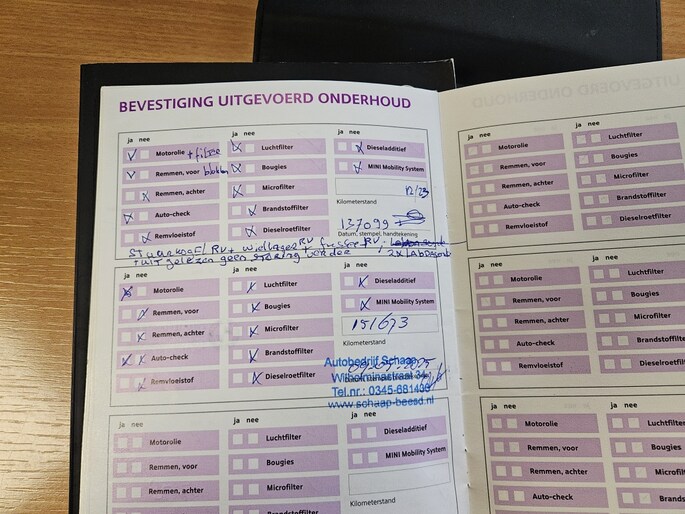 BEVESTIGING UITGEVOERD ONDERHOUD
ja nee
Motorolie + filter
Remmen, voor blokken
Remmen, achter
Auto-check
Remvloeistof
ja nee
Luchtfilter
Bougies
Microfilter
Brandstoffilter
Dieselroetfilter
ja nee
Dieseladditief
MINI Mobility System
12/23
Kilometerstand
137099
Datum, stempel, handtekening
RV + Wiellager RV
uit gelezen geen storing verder
ja nee
Motorolie
Remmen, voor
Remmen, achter
Auto-check
Remvloeistof
ja nee
Luchtfilter
Bougies
Microfilter
Brandstoffilter
Dieselroetfilter
ja nee
Dieseladditief
MINI Mobility System
151673
Kilometerstand
Autobedrijf Schaap
Wilhelminastraat 34
Tel.nr.: 0345-681409
www.schaap-beesd.nl
ja nee
Motorolie
Remmen, voor
Remmen, achter
ja nee
Luchtfilter
Bougies
Microfilter
Brandstoffilter
ja nee
Dieseladditief
MINI Mobility System
Kilometerstand
ja nee
Motorolie
Remmen, voor
Remmen, achter
Auto-check
Remvloeistof
ja nee
Luchtfilter
Bougies
Microfilter
Brandstoffilter
ja nee
Motorolie
Remmen, voor
Remmen, achter
Auto-check
Remvloeistof
ja nee
Luchtfilter
Bougies
Microfilter
ja nee
Motorolie
Remmen, voor
Remmen, achter
Auto-check
ja nee
Luchtfilter
Bougies